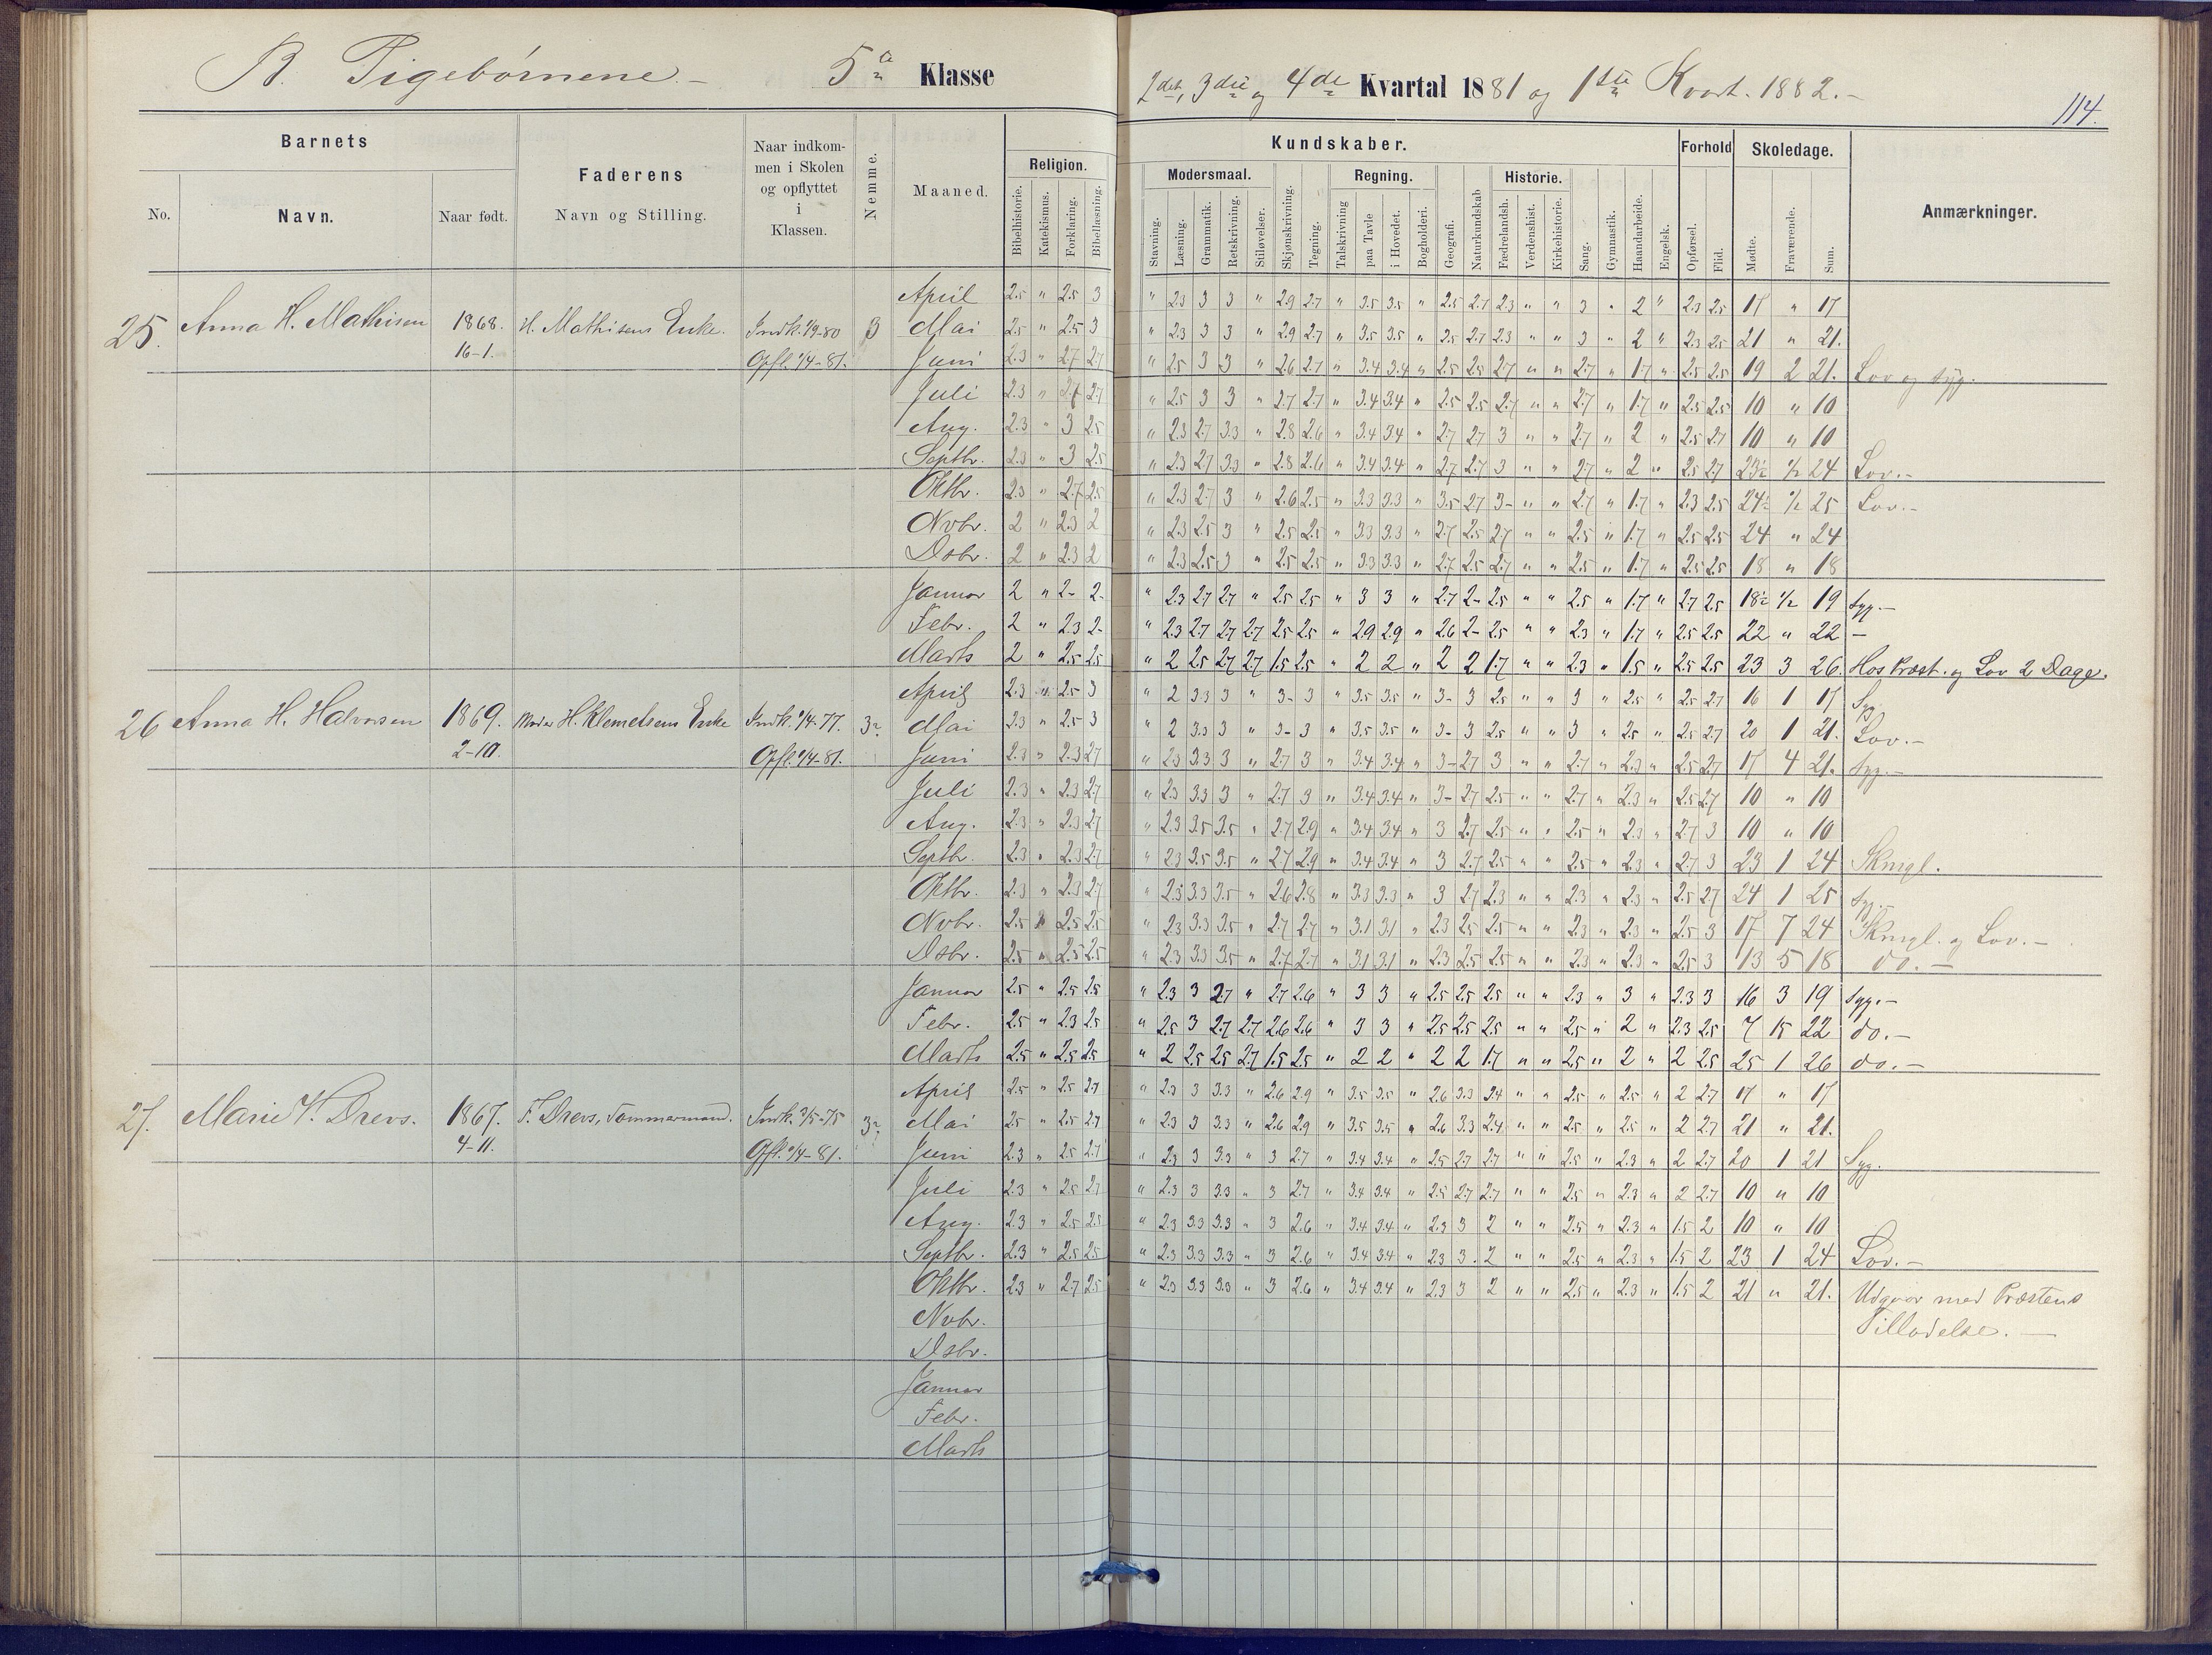 B. Pigebørnene. - 5a Klasse
2det, 3die og 4de Kvartal 1881 og 1ste Kvart. 1882. -
114.
Barnets
Faderens
Naar indkommen i Skolen og opflyttet i Klassen.
Nemme.
Maaned.
Religion.
Kundskaber.
Forhold
Skoledage.
Anmærkninger.
No.
Navn.
Naar født.
Navn og Stilling.
Modersmaal.
Regning.
Historie.
Bibelhistorie. Katekismus. Forklaring. Bibellæsning. Stavning. Læsning. Grammatik. Retskrivning. Stiløvelser. Skjønskrivning. Tegning. Talskrivning paa Tavle i Hovedet. Bogholderi. Geografi. Naturkundskab Fædrelandsh. Verdenshist. Kirkehistorie. Sang. Gymnastik. Haandarbeide. Engelsk. Opførsel. Flid. Mødte. Fraværende. Sum.
April 2.5 " 2.5 3 " 2.3 3 3 " 2.9 2.7 " 3.5 3.5 " 2.5 2.7 2.3 " " 3 " 2 " 2.3 2.5 17 " 17
25. Anna H. Mathisen 1868. H. Mathisens Enke. Indk. 1/9-80 3 Mai 2.5 " 2.5 3 " 2.3 3 3 " 2.9 2.7 " 3.5 3.5 " 2.5 2.7 2.3 " " 3 " 2 " 2.3 2.5 21 " 21.
16-1. Opfl. 1/4-81. Juni 2.3 " 2.7 2.7 " 2.5 3 3 " 2.6 2.7 " 3.4 3.4 " 2.5 2.5 2.7 " " 2.7 " 1.7 " 2.5 2.5 19 2 21. Lov og syg.
Juli 2.3 " 2.7 2.7 " 2.5 3 3 " 2.7 2.7 " 3.4 3.4 " 2.5 2.5 2.7 " " 2.7 " 1.7 " 2.5 2.5 10 " 10
Aug. 2.3 " 3 2.5 " 2.3 2.7 3.3 " 2.8 2.6 " 3.4 3.4 " 2.7 2.7 3 " " 2.7 " 2 " 2.5 2.7 10 " 10
Septbr. 2.3 " 3 2.5 " 2.3 2.7 3.3 " 2.8 2.6 " 3.4 3.4 " 2.7 2.7 3 " " 2.7 " 2 " 2.5 2.7 23½ ½ 24 Lov. -
Oktbr. 2.3 " 2.7 2.5 " 2.3 2.7 3 " 2.6 2.5 " 3.3 3.3 " 3.5 2.7 3- " " 2.7 " 1.7 " 2.3 2.5 24½ ½ 25 Lov. -
Novbr. 2 " 2.3 2 " 2.3 2.5 3 " 2.5 2.5 " 3.3 3.3 " 2.7 2.5 2.7 " " 2.5 " 1.7 " 2.5 2.5 24 " 24
Dsbr. 2 " 2.3 2 " 2.3 2.5 3 " 2.5 2.5 " 3.3 3.3 " 2.7 2.5 2.7 " " 2.5 " 1.7 " 2.5 2.5 18 " 18
Januar 2 " 2- 2- " 2.3 2.7 2.7 " 2.5 2.5 " 3 3 " 2.7 2- 2.5 " " 2.5 " 1.7 " 2.7 2.5 18½ ½ 19 syg. -
Febr. 2 " 2.3 2- " 2.3 2.7 2.7 2.7 2.5 2.5 " 2.9 2.9 " 2.6 2- 2.5 " " 2.3 " 1.7 " 2.5 2.5 22 " 22 -
Marts 2 " 2.5 2.5 " 2 2.5 2.7 2.7 1.5 2.5 " 2 2 " 2 2 1.7 " " 2.3 " 1.5 " 2.5 2.5 23 3 26. Hos Præst. og Lov 2 Dage.
April 2.3 " 2.5 3 " 2 3.3 3 " 3- 3 " 3.5 3.5 " 3- 3 2.5 " " 3 " 2.5 " 2.5 2.7 16 1 17 Syg.
26 Anna H. Halvorsen 1869. Moder H. Klemetsens Enke Indk. 1/4-77. 3- Mai 2.3 " 2.5 3 " 2 3.3 3 " 3- 3 " 3.5 3.5 " 3- 3 2.5 " " 3 " 2.5 " 2.5 2.7 20 1 21. Lov. -
2-10. Opfl. 1/4-81. Juni 2.3 " 2.3 2.7 " 2.3 3.3 3 " 2.7 3 " 3.4 3.4 " 3- 2.7 3 " " 2.7 " 2.3 " 2.5 2.7 17 4 21. Syg. -
Juli 2.3 " 2.3 2.7 " 2.3 3.3 3 " 2.7 3 " 3.4 3.4 " 3- 2.7 2.5 " " 2.7 " 2.3 " 2.5 2.7 10 " 10
Aug. 2.3 " 2.3 2.7 " 2.3 3.5 3.5 " 2.7 2.9 " 3.4 3.4 " 3 2.7 2.5 " " 2.5 " 2.3 " 2.7 3 10 " 10
Septbr. 2.3 " 2.3 2.7 " 2.3 3.5 3.5 " 2.7 2.9 " 3.4 3.4 " 3 2.7 2.5 " " 2.5 " 2.3 " 2.7 3 23 1 24 Skmgl.
Oktbr. 2.3 " 2.3 2.7 " 2.3 3.3 3.5 " 2.6 2.8 " 3.3 3.3 " 3 2.7 2.3 " " 2.3 " 2.3 " 2.5 2.7 24 1 25 Syg. -
Novbr. 2.5 " 2.5 2.5 " 2.3 3.3 3.5 " 2.7 2.7 " 3.1 3.1 " 2.3 2.5 2.5 " " 2.3 " 2.3 " 2.5 3 17 7 24 Skmgl. og Lov. -
Dsbr. 2.5 " 2.5 2.5 " 2.3 3.3 3.5 " 2.7 2.7 " 3.1 3.1 " 2.3 2.5 2.5 " " 2.3 " 2.3 " 2.5 3 13 5 18 do. -
Januar 2.5 " 2.5 2.5 " 2.3 3 2.7 " 2.7 2.6 " 3 3 " 2.5 2.5 2.5 " " 2.3 " 3 " 2.3 3 16 3 19 syg. -
Febr. 2.5 " 2.3 2.5 " 2.5 3 2.7 2.7 2.6 2.6 " 3 3 " 2.5 2.5 2.5 " " 2.5 " 2 " 2.3 2.5 7 15 22 do. -
Marts 2.5 " 2.5 2.5 " 2 2.5 2.5 2.7 1.5 2.5 " 2 2 " 2 2 1.7 " " 2.5 " 2 " 2 2.5 25 1 26 do. -
April 2.5 " 2.5 2.7 " 2.3 3 3.3 " 2.6 2.9 " 3.5 3.5 " 2.6 3.3 2.4 " " 2.5 " 2.5 " 2 2.7 17 " 17
27. Marie V. Drevs. 1867. F. Drevs, Tømmermand. Indk. 3/5-75 3- Mai 2.5 " 2.5 2.7 " 2.3 3 3.3 " 2.6 2.9 " 3.5 3.5 " 2.6 3.3 2.4 " " 2.5 " 2.5 " 2 2.7 21 " 21.
4-11. Opfl. 1/4-81. Juni 2.3 " 2.5 2.7 " 2.3 3 3.3 " 3 2.7 " 3.4 3.4 " 2.5 2.7 2.7 " " 2.5 " 2.3 " 2 2.7 20 1 21 Syg.
Juli 2.3 " 2.5 2.7 " 2.3 3 3.3 " 3 2.7 " 3.4 3.4 " 2.5 2.7 2.7 " " 2.5 " 2.3 " 2 2.7 10 " 10
Aug. 2.3 " 2.5 2.5 " 2.3 3.3 3.3 " 3 2.6 " 3.4 3.4 " 2.3 3 2 " " 2.5 " 2.3 " 1.5 2 10 " 10
Septbr. 2.3 " 2.5 2.5 " 2.3 3.3 3.3 " 3 2.6 " 3.4 3.4 " 2.3 3. 2 " " 2.5 " 2.3 " 1.5 2 23 1 24 Lov. -
Oktbr. 2.3 " 2.7 2.5 " 2.3 3.3 3.3 " 3 2.6 " 3.4 3.4 " 2.3 3 2 " " 2.5 " 2.3 " 1.5 2 21 " 21. Udgaar med Præstens
Novbr. Tilladelse. -
Dsbr.
Januar
Febr.
Marts